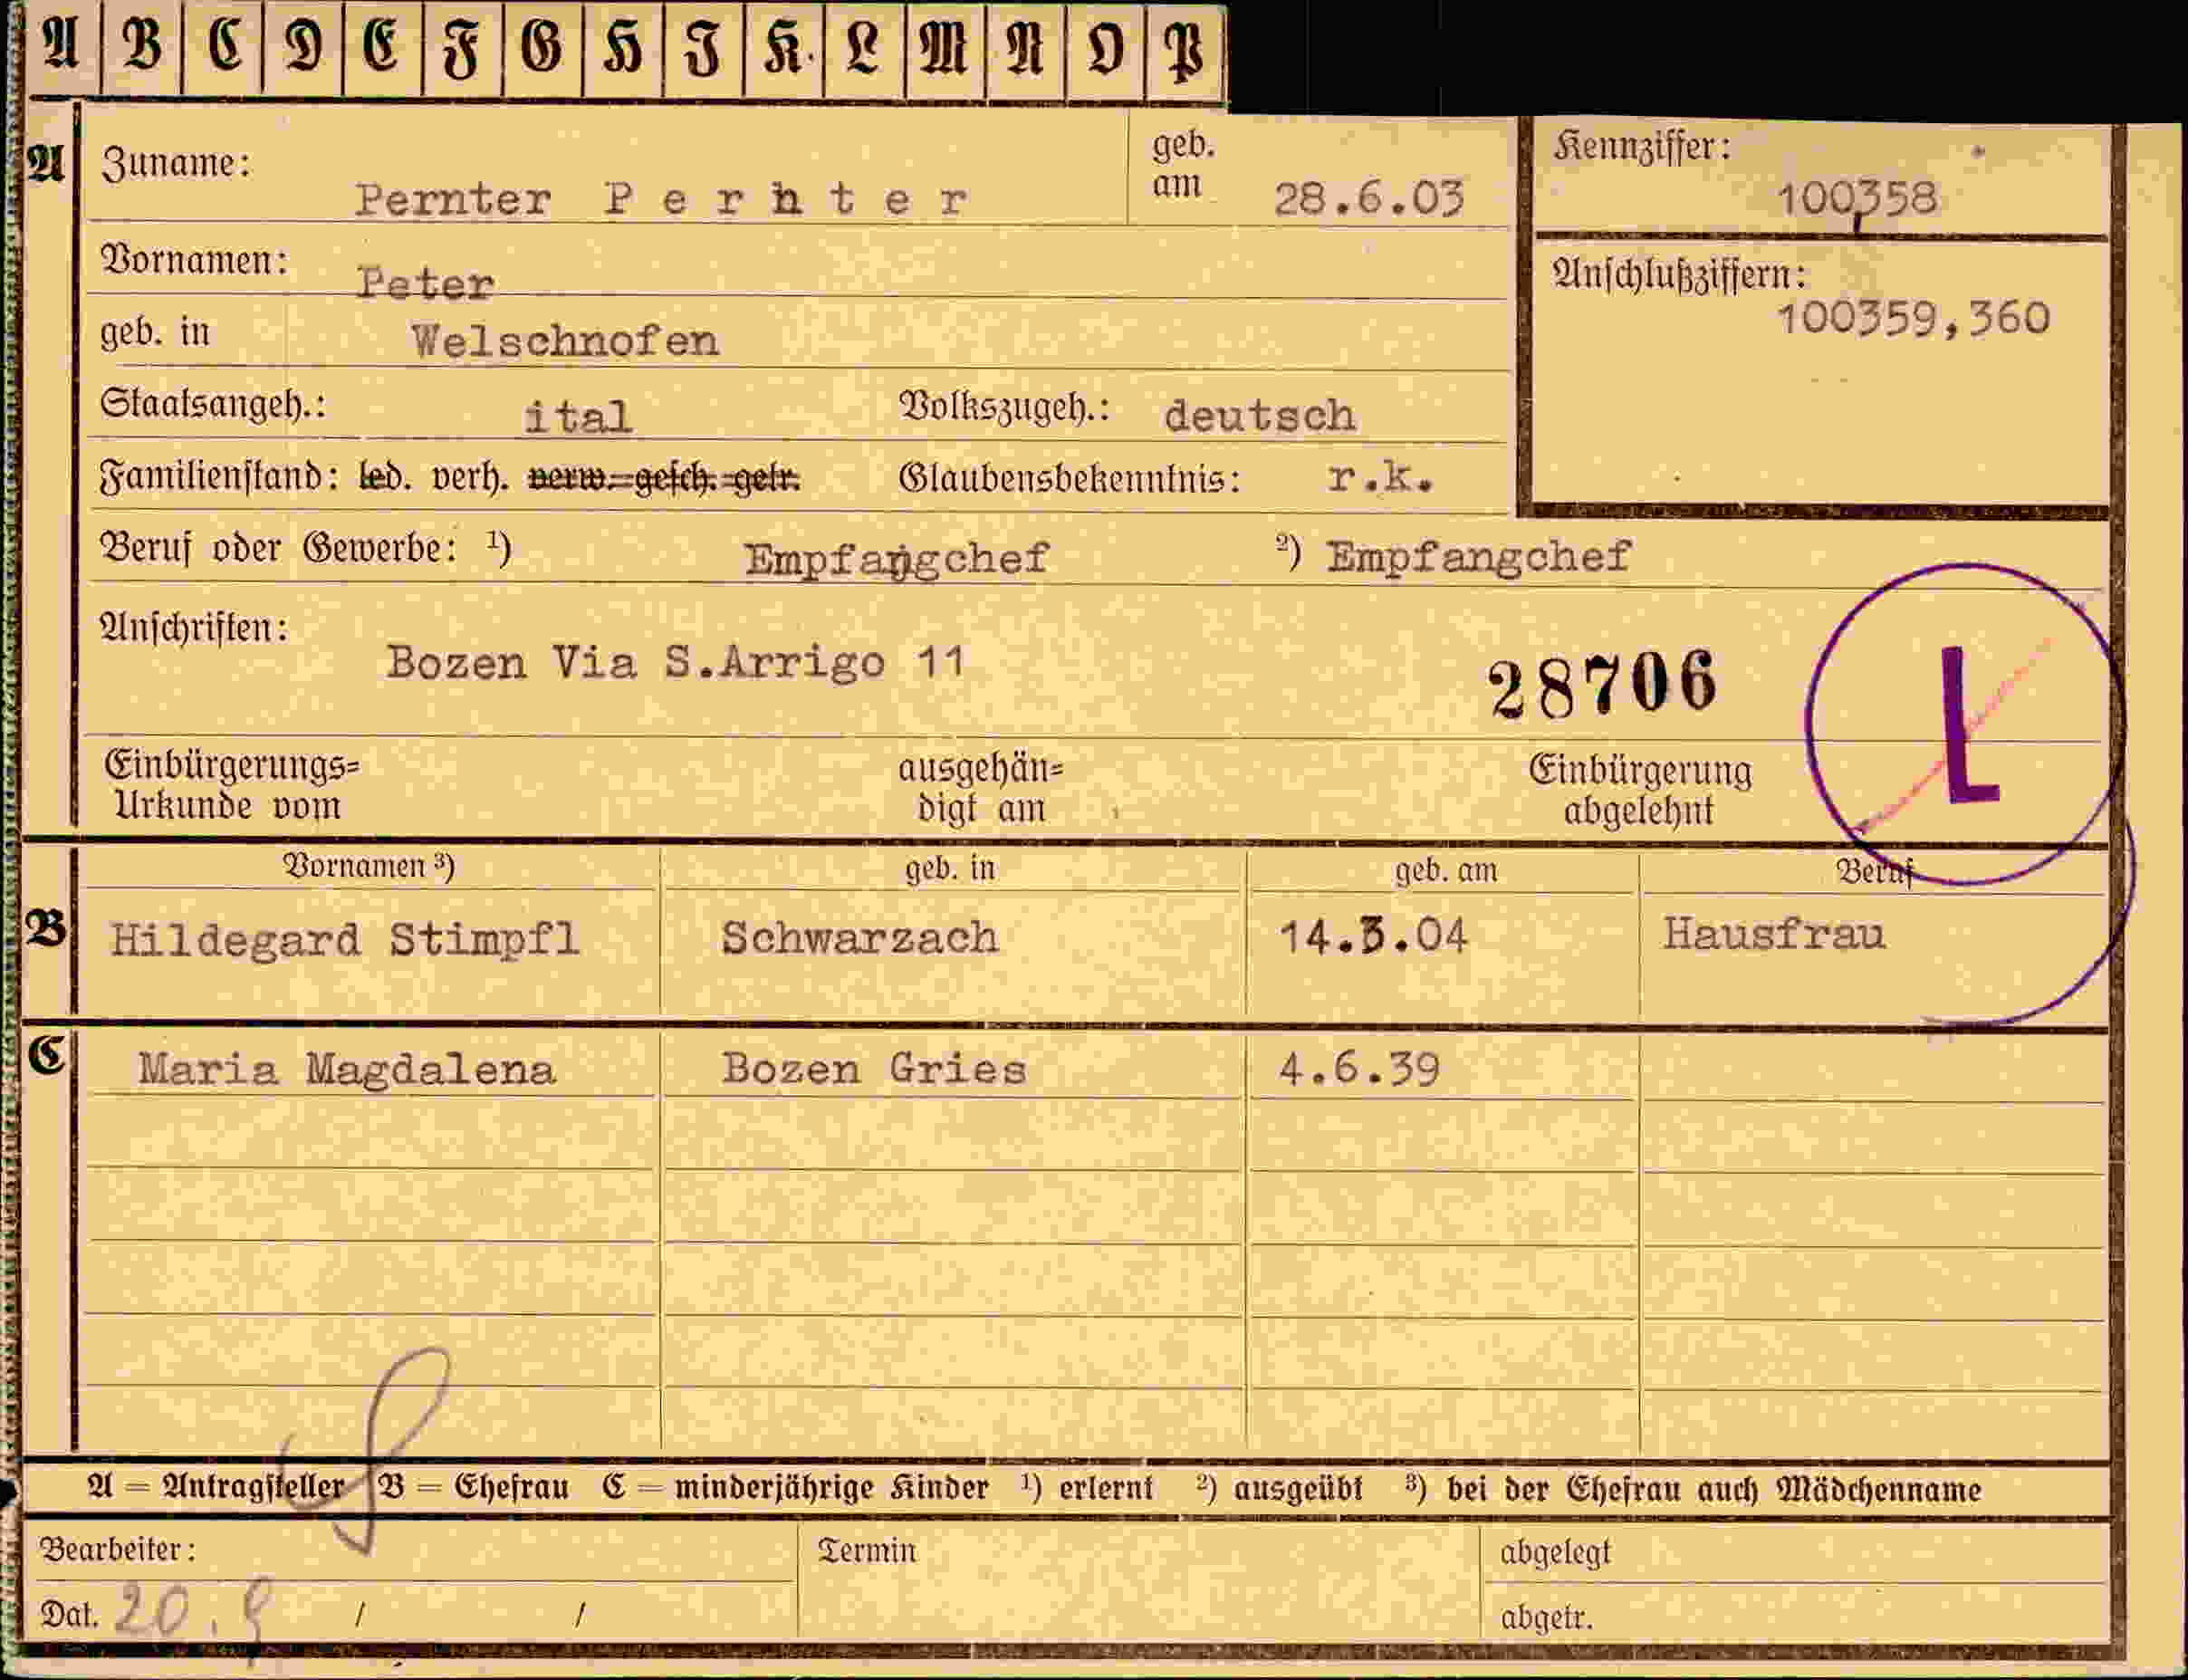 A B C D E F G H J K. L M N O P
A Zuname: Pernter P e r n t e r geb. am 28.6.03 Kennziffer: 100358
Vornamen: Peter Anschlußziffern:
geb. in Welschnofen 100359,360
Staatsangeh.: ital Volkszugeh.: deutsch
Familienstand: led. verh. verw. gesch. getr. Glaubensbekenntnis: r.k.
Beruf oder Gewerbe: ¹) Empfangchef ²) Empfangchef
Anschriften: Bozen Via S.Arrigo 11 28706 L
Einbürgerungs= ausgehän= Einbürgerung
Urkunde vom digt am abgelehnt
Vornamen ³) geb. in geb. am Beruf
B Hildegard Stimpfl Schwarzach 14.3.04 Hausfrau
C Maria Magdalena Bozen Gries 4.6.39
A = Antragsteller B = Ehefrau C = minderjährige Kinder ¹) erlernt ²) ausgeübt ³) bei der Ehefrau auch Mädchenname
Bearbeiter: Termin abgelegt
Dat. 20.9 / / abgetr.